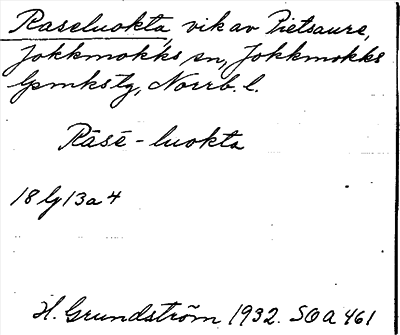 Raseluokta, vik av Pietsaure,
Jokkmokks sn, Jokkmokks
lpmkstg, Norrb. l.
Rāsē-luokta
18 lg 13a4
H. Grundström 1932. SOA 461